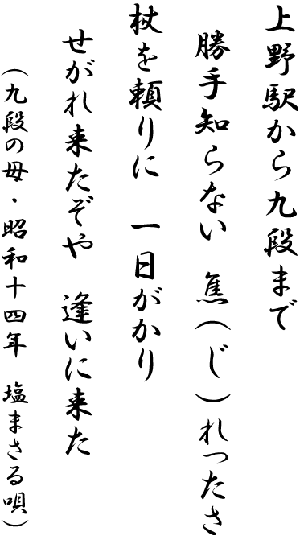 上野駅から九段まで
勝手知らない　焦(じ)れったさ
杖を頼りに　一日がかり
せがれ来たぞや　逢いに来た
(九段の母・昭和十四年　塩まさる唄)